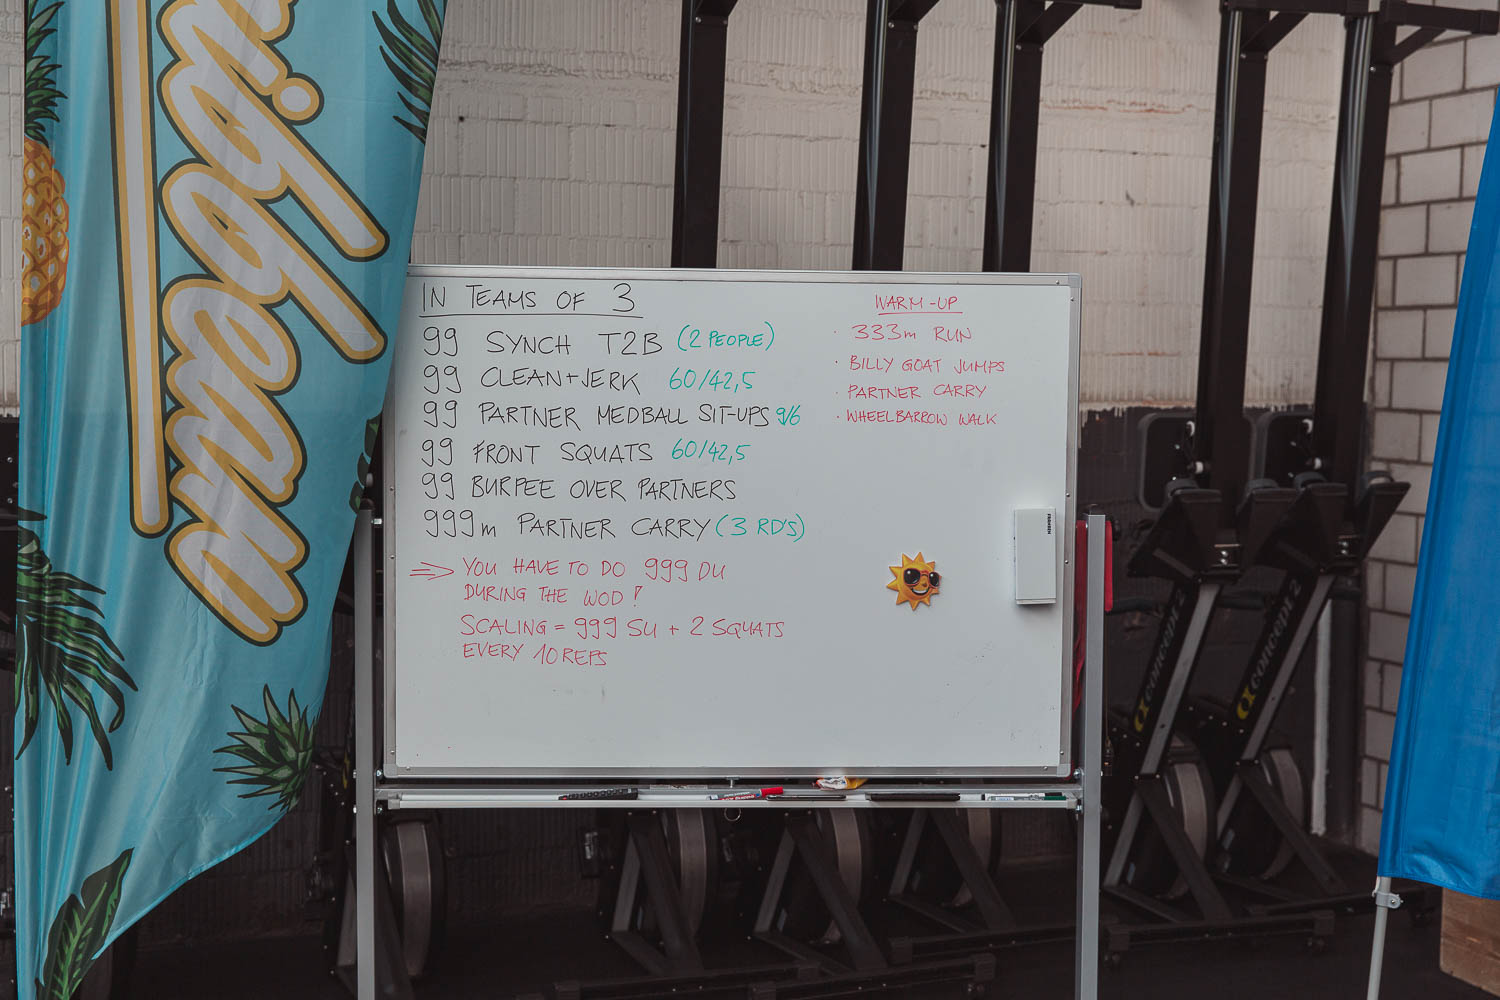 IN TEAMS OF 3
99 SYNCH T2B (2 PEOPLE)
99 CLEAN+JERK 60/42,5
99 PARTNER MEDBALL SIT-UPS 9/6
99 FRONT SQUATS 60/42,5
99 BURPEE OVER PARTNERS
999m PARTNER CARRY (3 RD'S)
⇒ YOU HAVE TO DO 999 DU
DURING THE WOD!
SCALING = 999 SU + 2 SQUATS
EVERY 10 REPS
WARM-UP
· 333m RUN
· BILLY GOAT JUMPS
· PARTNER CARRY
· WHEELBARROW WALK
ibbean
concept 2
concept 2